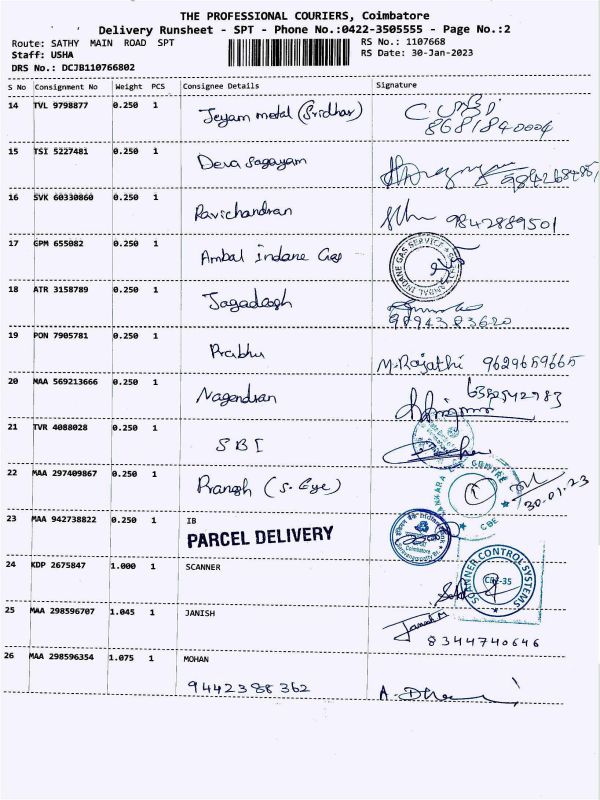 THE PROFESSIONAL COURIERS, Coimbatore
Delivery Runsheet - SPT - Phone No.:0422-3505555 - Page No.:2
Route: SATHY MAIN ROAD SPT
RS No.: 1107668
Staff: USHA
RS Date: 30-Jan-2023
DRS No.: DCJB110766802
S No Consignment No Weight PCS Consignee Details Signature
14 TVL 9798877 0.250 1 Jeyam metal (Sridhar)
8681840004
15 TSI 5227481 0.250 1 Deva Sagayam
16 SVK 60330860 0.250 1 Ravichandran 9842889501
17 GPM 655082 0.250 1 Ambal indane Gas
INDANE GAS SERVICE
18 ATR 3158789 0.250 1 Jagadeesh
9094383620
19 PON 7905781 0.250 1 Prabhu M.Rajathi 9629659665
20 MAA 569213666 0.250 1 Nagendran 6382542983
21 TVR 4088028 0.250 1 SBI
22 MAA 297409867 0.250 1 (S. Eye)
SANKARA EYE CENTRE CBE
30-01-23
23 MAA 942738822 0.250 1 IB
PARCEL DELIVERY
24 KDP 2675847 1.000 1 SCANNER
SCANNER CONTROL SYSTEMS CBE-35
25 MAA 298596707 1.045 1 JANISH
8344740646
26 MAA 298596354 1.075 1 MOHAN
9442388362